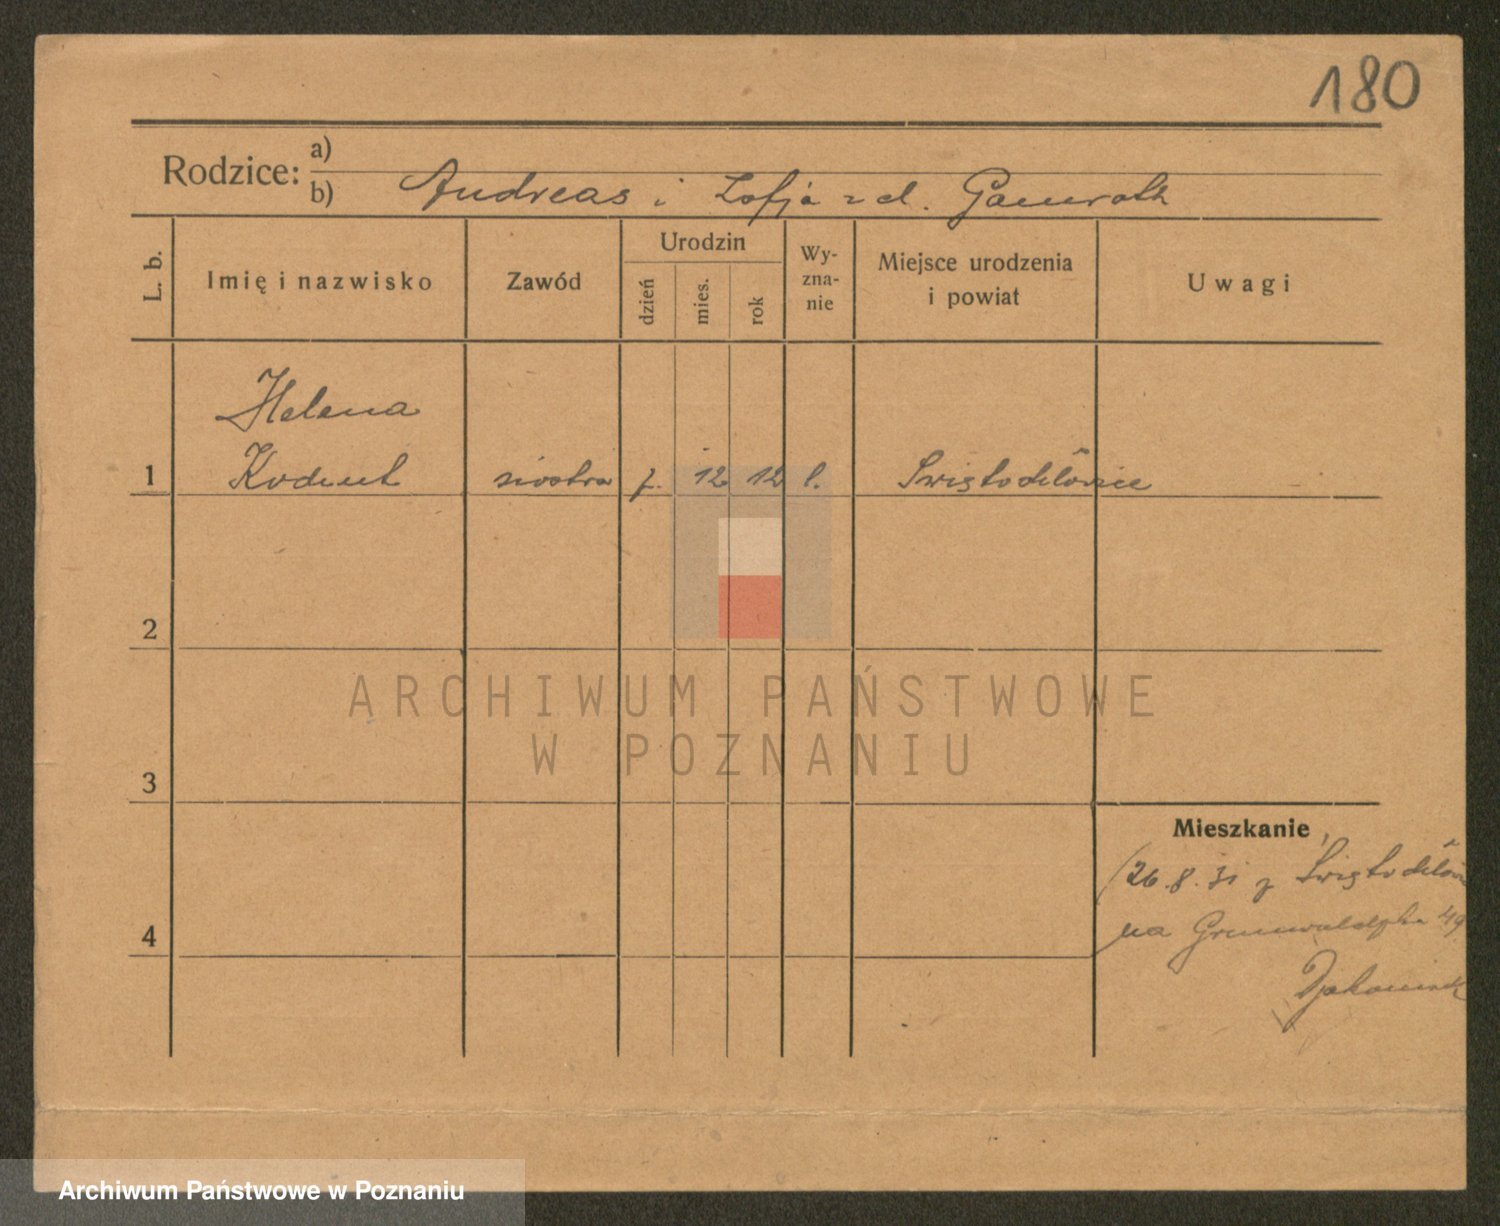 180
Rodzice: a)
b) Andreas i Zofja z d. Gamroth
L. b.
Imię i nazwisko
Zawód
Urodzin
dzień
mies.
rok
Wy-
zna-
nie
Miejsce urodzenia
i powiat
Uwagi
Helena
1 siostra 7. 12 12 Świętochłowice
2
3
4
Mieszkanie
(26.8.31 z Świętochłow
na Grunwaldzka 49
ARCHIWUM PAŃSTWOWE
W POZNANIU
Archiwum Państwowe w Poznaniu